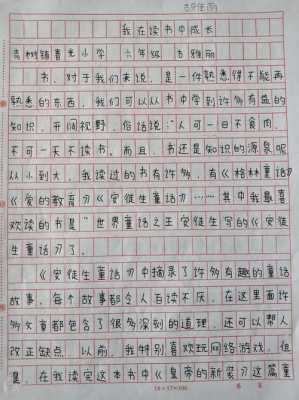 我在读书中成长
青树铺青光小学 六年级 古雅丽
书,对于我们来说,是一件熟悉得不能再
熟悉的东西,我们可以从书中学到许多有益的
知识,开阔视野,俗话说:“人可一日不食肉,
不可一天不读书。而且,书还是知识的源泉呢
从小到大,我读过的书有许多,有《格林童话》
《爱的教育》《安徒生童话》……其中我最喜
欢读的书是“世界童话之王安徒生写的《安徒
生童话》了。
《安徒生童话》中摘录了许多有趣的童话
故事,每个故事都令人百读不厌,在这里面许
多文章都包含了很多深刻的道理,还可以帮人
改正缺点,以前,我特别喜欢玩网络游戏,但
是,在我读完这本书中《皇帝的新装》这篇童